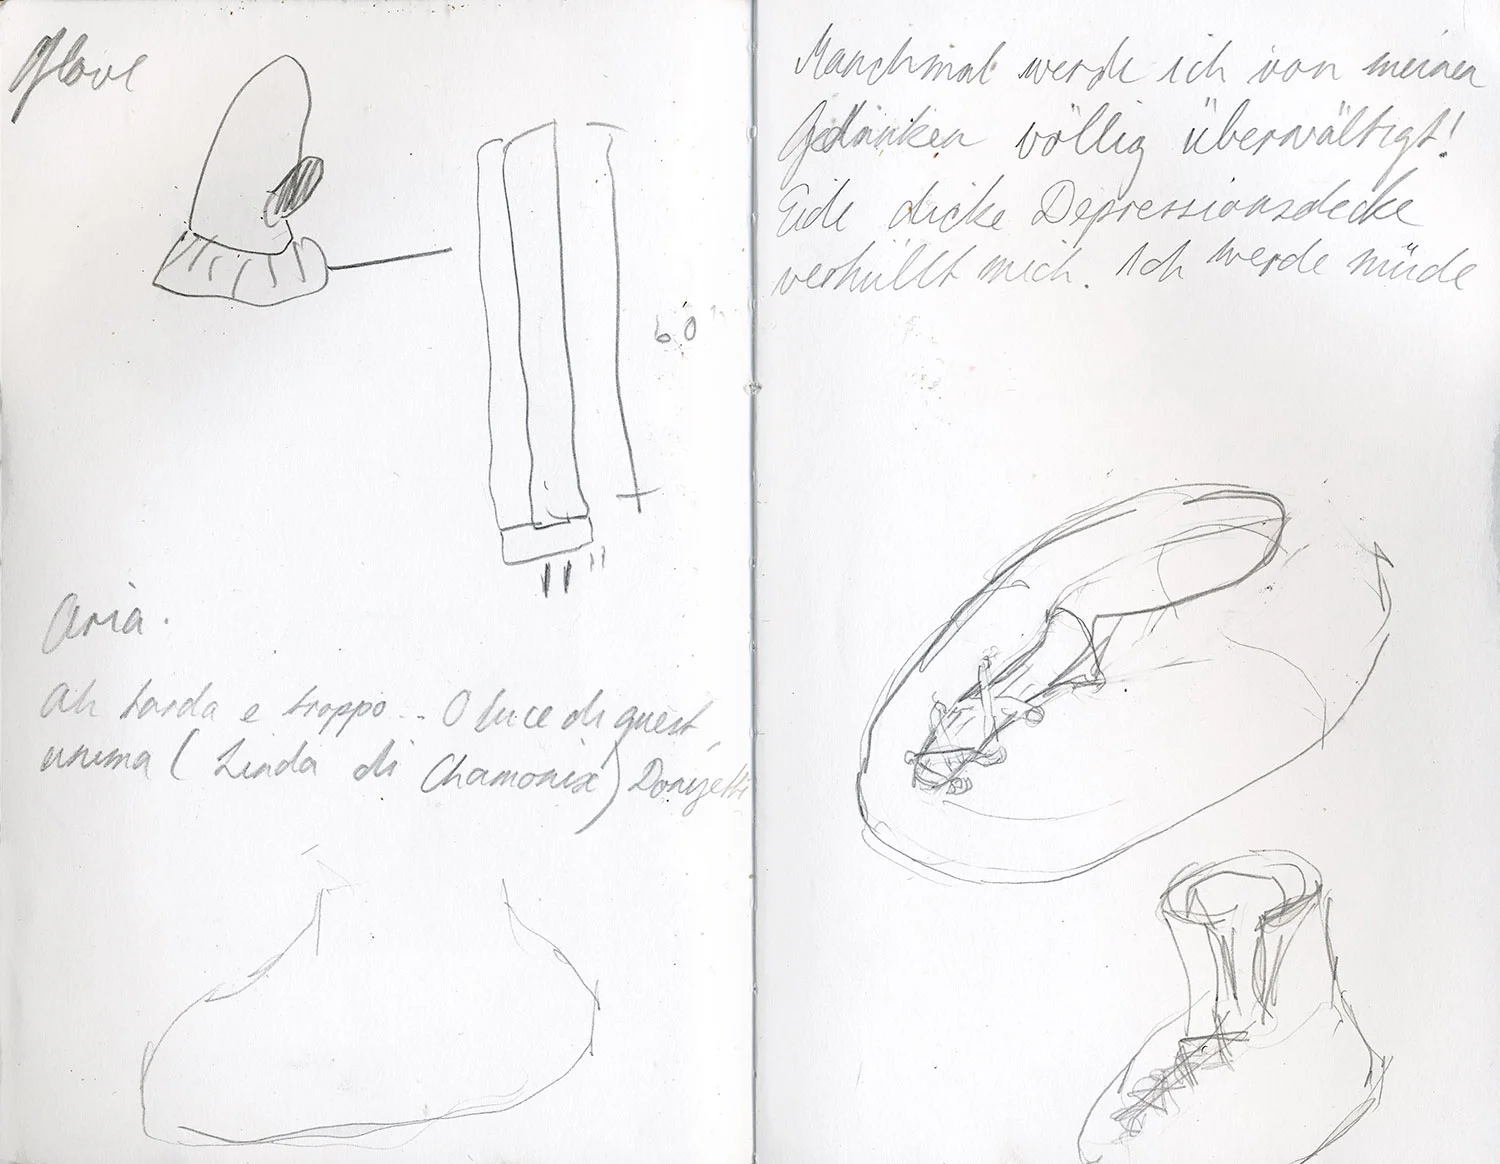 Glove
60"
Aria.
Ah tarda e troppo... O luce di quest'
anima ( Linda di Chamonix) Donizetti
Manchmal werde ich von meinen
Gedanken völlig überwältigt!
dicke Depressionsdecke
verhüllt mich. Ich werde müde